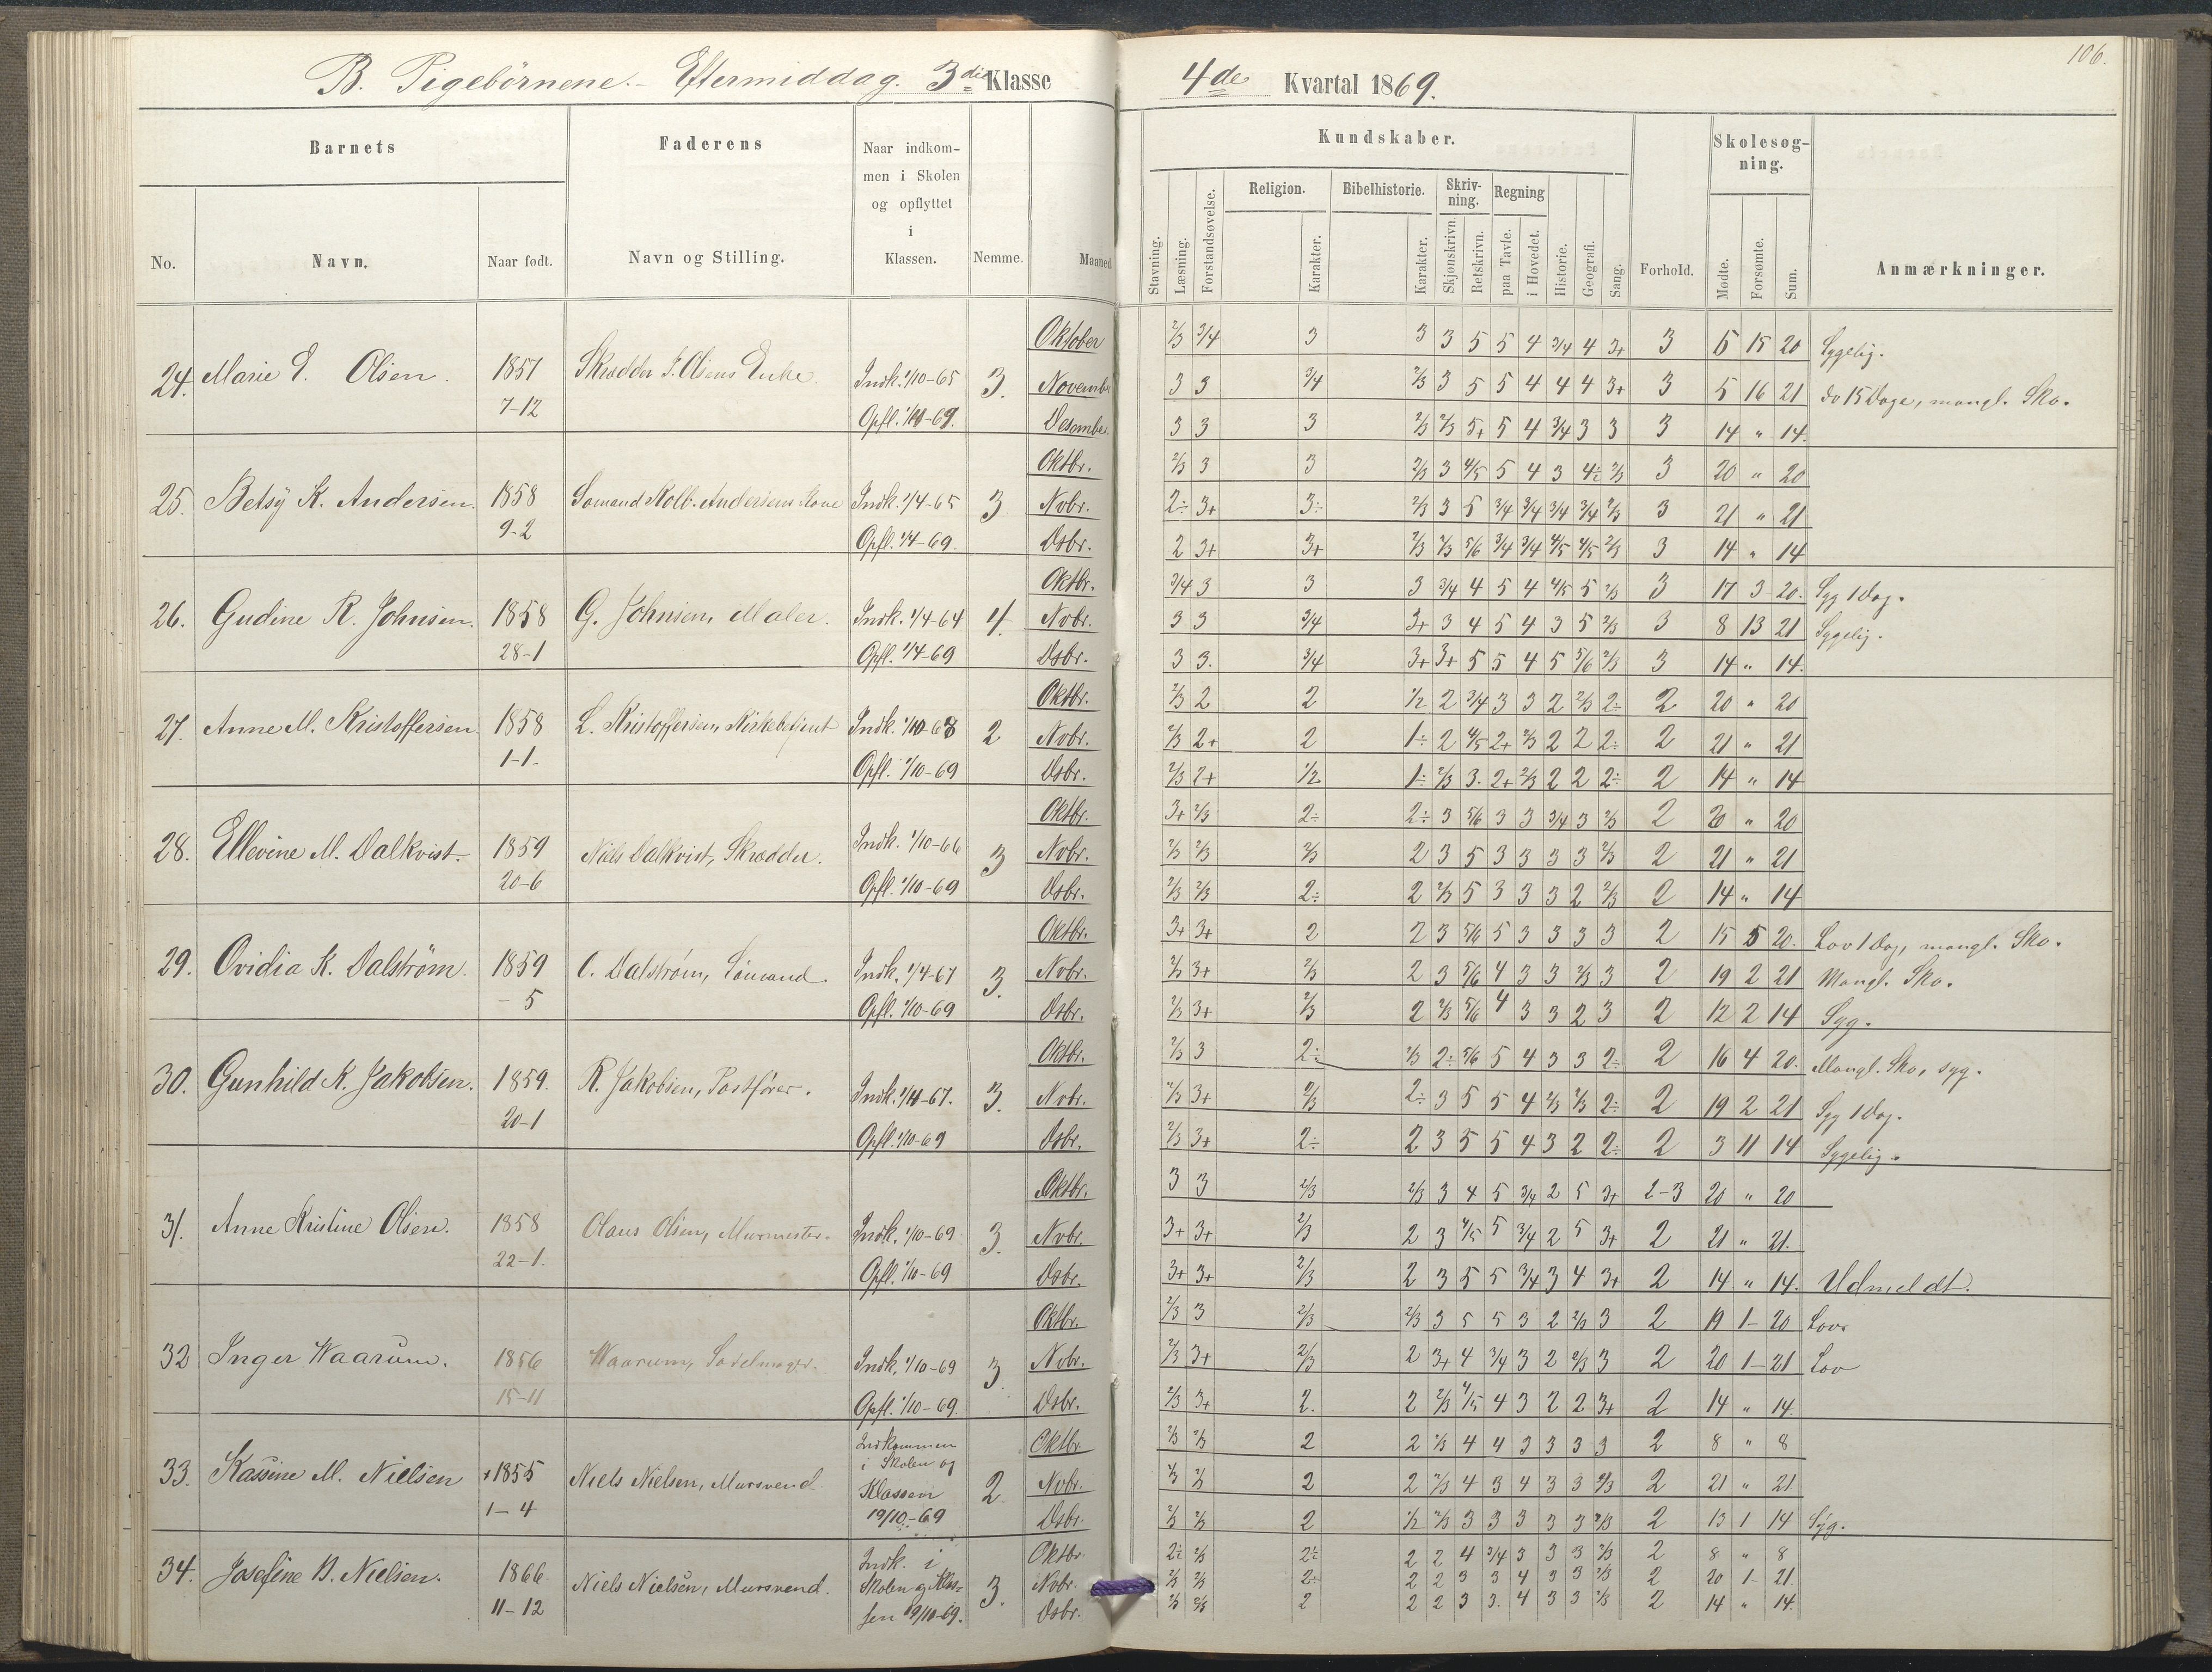 B. Pigebörnene. - Eftermiddag. 3die Klasse
4de Kvartal 1869.
106.
Barnets
Faderens
Naar indkom-
men i Skolen
og opflyttet
i
Klassen.
No.
Navn.
Naar født.
Navn og Stilling.
Nemme.
Maaned
Kundskaber.
Skolesøg-
ning.
Religion.
Bibelhistorie.
Skriv-
ning.
Regning
Stavning.
Læsning.
Forstandsøvelse.
Karakter.
Karakter.
Skjønskrivn.
Retskrivn.
paa Tavle.
i Hovedet.
Historie.
Geografi.
Sang.
Forhold.
Mødte.
Forsømte.
Sum.
Anmærkninger.
24. Marie E. Olsen. 1857 7-12 Skrædder J. Olsens Enke. Indk. 1/10-65 Opfl. 1/10-69. 3.
Oktober 2/3 3/4 3 3 3 5 5 4 3/4 4 3+ 3 5 15 20 Sygelig.
November 3 3 3/4 2/3 3 5 5 4 4 4 3+ 3 5 16 21 do 15 Dage, mangl. Sko.
Desember 3 3 3 2/3 2/3 5+ 5 4 3/4 3 3 3 14 " 14.
25. Betsy K. Andersen. 1858 9-2 Sømand Kolb. Andersens Kone Indk. 1/4-65 Opfl. 1/4-69. 3
Oktbr. 2/3 3 3 2/3 3 4/5 5 4 3 4÷ 2/3 3 20 " 20
Nvbr. 2÷ 3+ 3÷ 2/3 3 5 3/4 3/4 3/4 3/4 2/3 3 21 " 21
Dsbr. 2 3+ 3+ 2/3 2/3 5/6 3/4 3/4 4/5 4/5 2/3 3 14 " 14
26. Gudine R. Johnsen. 1858 28-1 G. Johnsen, Maler. Indk. 1/4-64 Opfl. 1/4-69 4.
Oktbr. 3/4 3 3 3 3/4 4 5 4 4/5 5 2/3 3 17 3 20. Syg 1 Dag.
Nvbr. 3 3 3/4 3+ 3 4 5 4 3 5 2/3 3 8 13 21 Sygelig.
Dsbr. 3 3. 3/4 3+ 3+ 5 5 4 5 5/6 2/3 3 14 " 14.
27. Anne M. Kristoffersen. 1858 1-1. L. Kristoffersen, Kirkebetjent Indk. 1/10-68 Opfl. 1/10-69 2
Oktbr. 2/3 2 2 1/2 2 3/4 3 3 2 2/3 2÷ 2 20 " 20
Nvbr. 2/3 2+ 2 1÷ 2 4/5 2+ 2/3 2 2 2÷ 2 21 " 21
Dsbr. 2/3 2+ 1/2 1÷ 2/3 3. 2+ 2/3 2 2 2÷ 2 14 " 14
28. Ellevine M. Dalkvist. 1859 20-6 Niels Dalkvist, Skrædder. Indk. 1/10-66 Opfl. 1/10-69 3
Oktbr. 3+ 2/3 2÷ 2÷ 3 5/6 3 3 3/4 3 2/3 2 20 " 20
Nvbr. 2/3 2/3 2/3 2 3 5 3 3 3 3 2/3 2 21 " 21
Dsbr. 2/3 2/3 2÷ 2 2/3 5 3 3 3 2 2/3 2 14 " 14
29. Ovidia K. Dalström. 1859 - 5 C. Dalström, Sömand. Indk. 1/4-67 Opfl. 1/10-69 3.
Oktbr. 3+ 3+ 2 2 3 5/6 5 3 3 3 3 2 15 5 20. Lov 1 Dag, mangl. Sko.
Nvbr. 2/3 3+ 2/3 2 3 5/6 4 3 3 2/3 3 2 19 2 21 Mangl. Sko.
Dsbr. 2/3 3+ 2/3 2 2/3 5/6 4 3 3 2 3 2 12 2 14 Syg.
30. Gunhild K. Jakobsen. 1859. 20-1 R. Jakobsen, Postförer. Indk. 1/4-67. Opfl. 1/10-69 3.
Oktbr. 2/3 3 2÷ 2/3 2÷ 5/6 5 4 3 3 2÷ 2 16 4 20. Mangl. Sko, syg.
Nvbr. 2/3 3+ 2/3 2÷ 3 5 5 4 2/3 2/3 2÷ 2 19 2 21 Syg 1 Dag.
Dsbr. 2/3 3+ 2÷ 2 3 5 5 4 3 2 2÷ 2 3 11 14 Sygelig.
31. Anne Kristine Olsen. 1858 22-1. Olaus Olsen, Murmester. Indk. 1/10-69 Opfl. 1/10-69 3.
Oktbr. 3 3 2/3 2/3 3 4 5 3/4 2 5 3+ 2-3 20 " 20
Nvbr. 3+ 3+ 2/3 2 3 4/5 5 3/4 2 5 3+ 2 21 " 21.
Dsbr. 3+ 3+ 2/3 2 3 5 5 3/4 3 4 3+ 2 14 " 14. Udmeldt.
32 Inger Waarum. 1856 15-11 Waarum, Sadelmager. Indk. 1/10-69 Opfl. 1/10-69. 3
Oktbr. 2/3 3 2/3 2/3 3 5 5 3 2 2/3 3 2 19 1 20 Lov.
Nvbr. 2/3 3+ 2/3 2 3+ 4 3/4 3 2 2/3 3 2 20 1 21 Lov
Dsbr. 2/3 3+ 2. 2 2/3 4/5 4 3 2 2 3+ 2 14 " 14.
33. Kassine M. Nielsen +1855 1-4 Niels Nielsen, Mursvend. Indkommen i Skolen og Klassen 19/10-69 2.
Oktbr 2/3 2/3 2 2 2/3 4 4 3 3 3 3 2 8 " 8
Nvbr. 2/3 2/3 2 2 2/3 4 3 4 3 3 2/3 2 21 " 21
Dsbr. 2/3 2/3 2 1/2 2/3 3 3 3 3 3 2/3 2 13 1 14 Syg.
34. Josefine B. Nielsen. 1866 11-12 Niels Nielsen, Mursvend. Indk. i Skolen og Klas- sen 19/10-69. 3.
Oktbr. 2÷ 2/3 2÷ 2 2 4 3/4 3 3 3 2/3 2 8 " 8
Nvbr. 2/3 2/3 2÷ 2 2 3 3 4 3 3 2/3 2 20 1 21.
Dsbr. 2/3 2/3 2 2 2 3 3. 4 3 3 2/3 2 14 " 14.